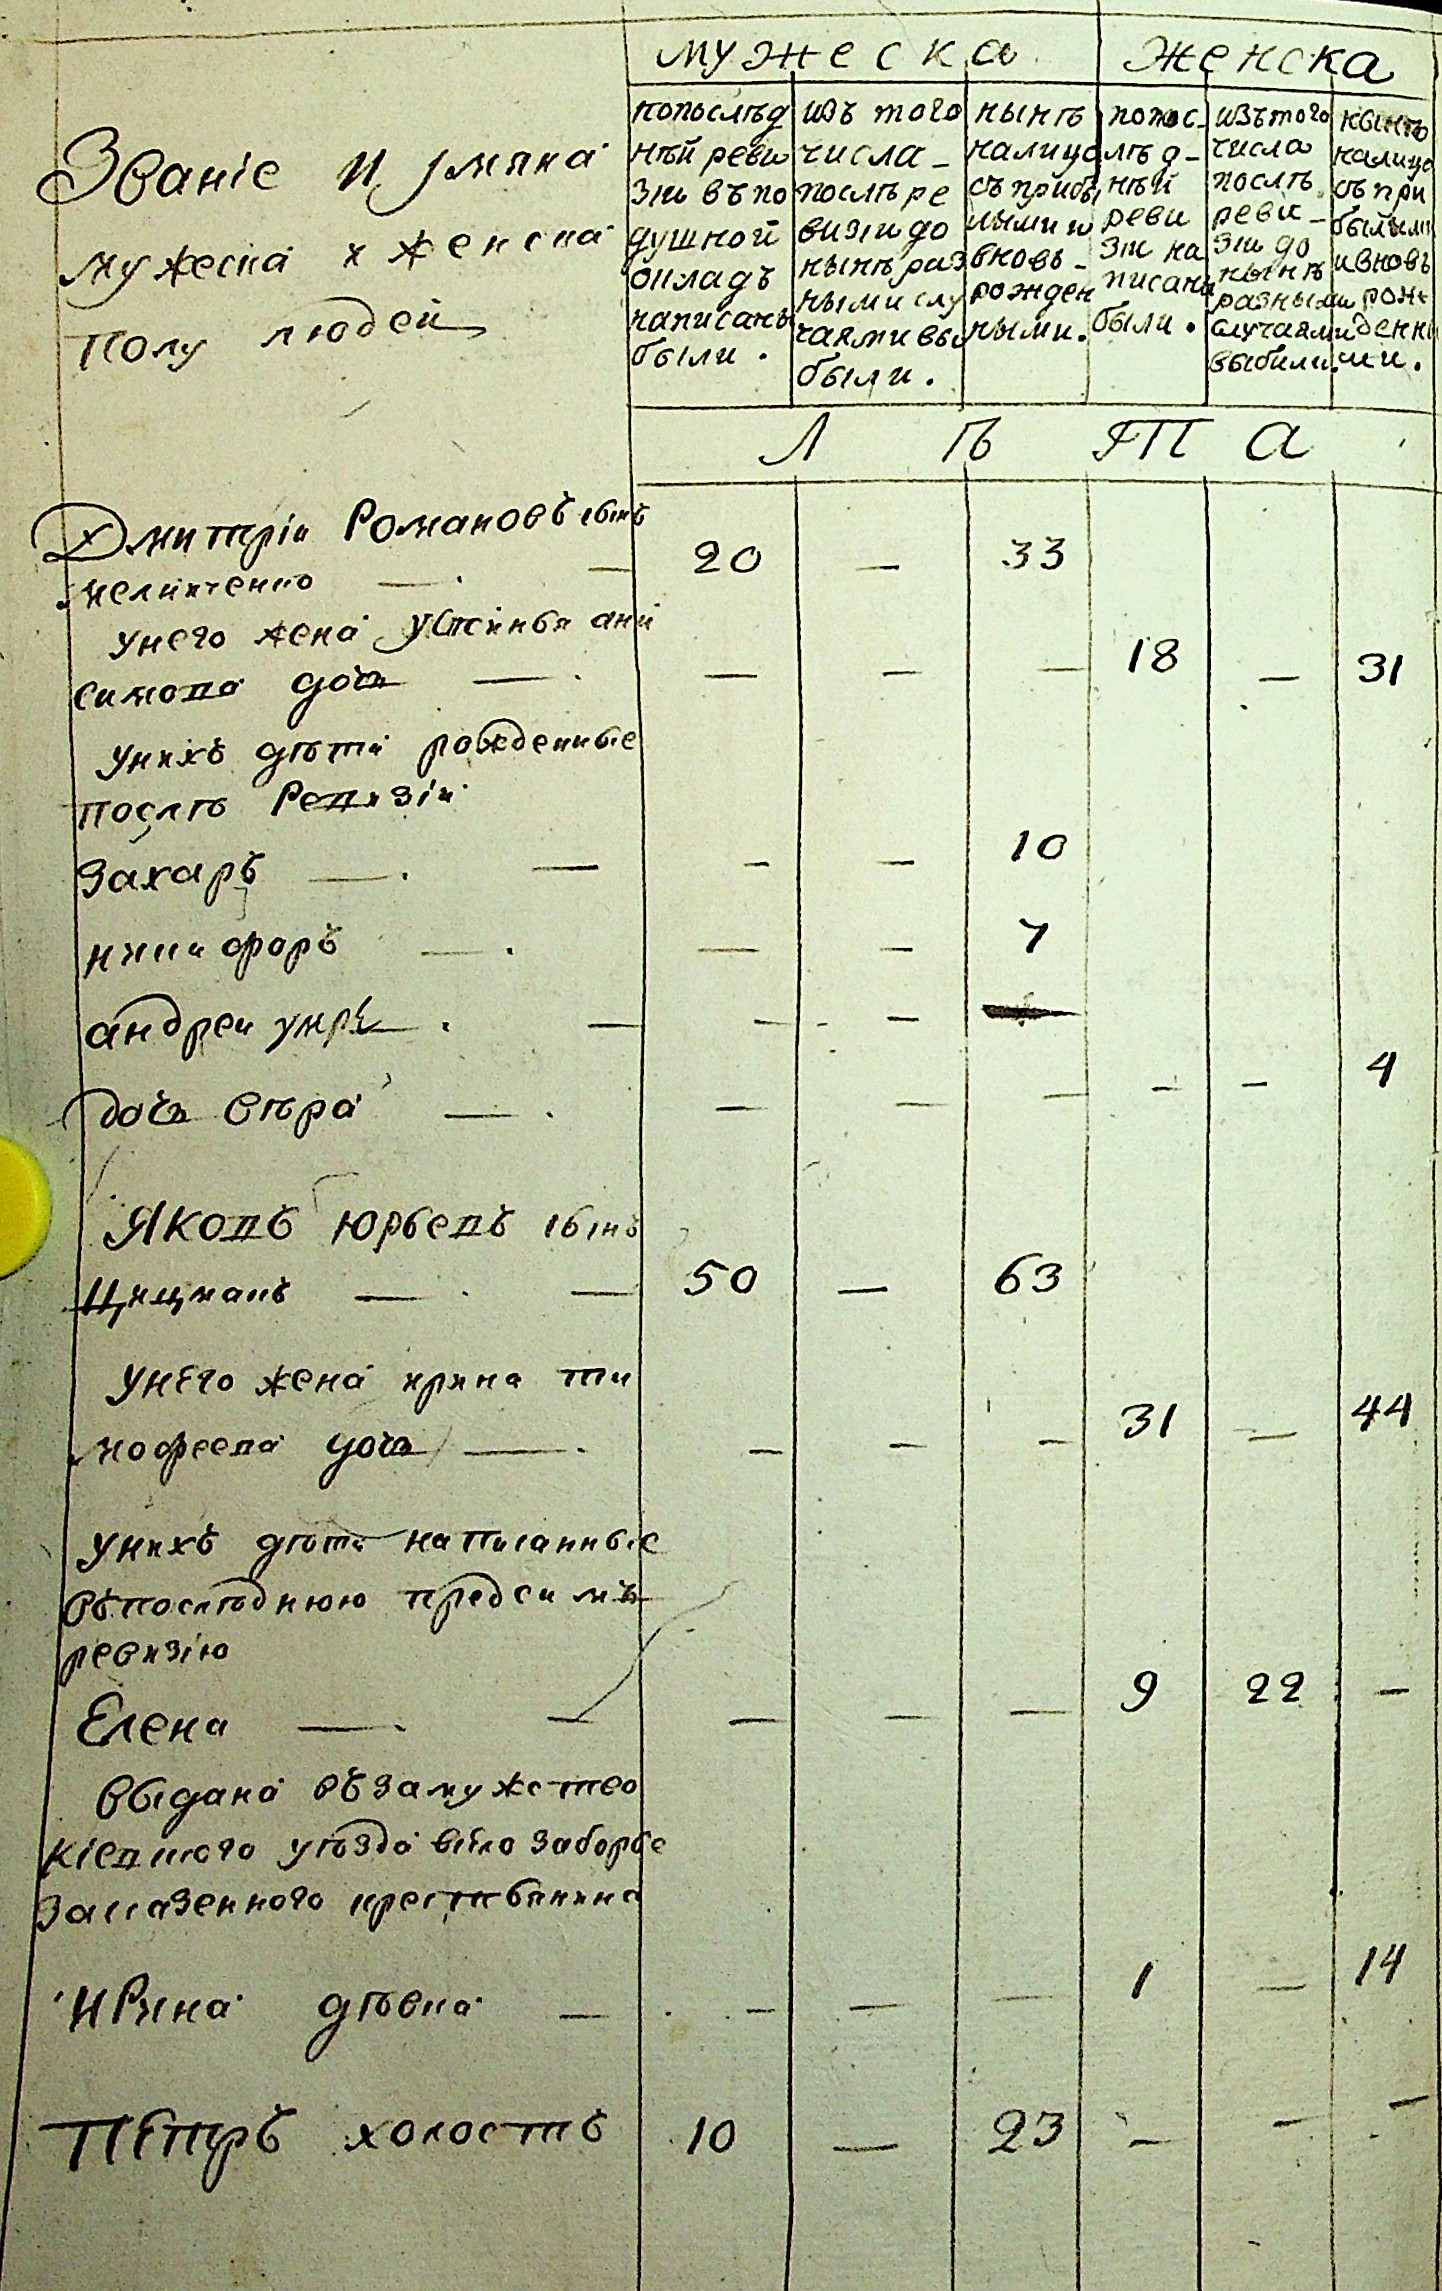 мужеска женска
Званіе и имяна
мужеска и женска
полу людей
попослѣд
нѣй реви
зіи въ по
душной
окладъ
написаны
были.
изъ того
числа
послѣ ре
визіи до
нынѣ раз
ными слу
чаями вы
были.
нынѣ
налицо
съ прибы
лыми и
вновь
рожден
ными.
попос
лѣд-
нѣй
реви
зіи на
писаны
были.
изътого
числа
послѣ
реви-
зіи до
нынѣ
разными
случаями
выбили.
нынѣ
налицо
съ при
былыми
ивновь
рож
денны
ми.
Л Ѣ Т А
Дмитріи Романовъ сынъ 20 — 33
мелниченко — . —
унего жена Устинья ани
симова дочь — . — — — 18 — 31
унихъ дѣти рожденные
послѣ Ревизіи
Захаръ — . — — — 10
никифоръ — . — — 7
андреи умре — . — — — —
дочь вѣра — . — — — — — 4
Яковъ юрьевъ сынъ
Цицманъ — . — 50 — 63
унего жена ирина ти
мофеева дочь — . — — — 31 — 44
унихъ дѣти написанные
въпослѣднюю предсимъ
ревизію
Елена — . — — — — 9 22 —
выдана въ замужство
кіевского уѣзда
заказенного крестьянина
ирина дѣвка — — — — 1 — 14
Петръ холостъ 10 — 23 — — —